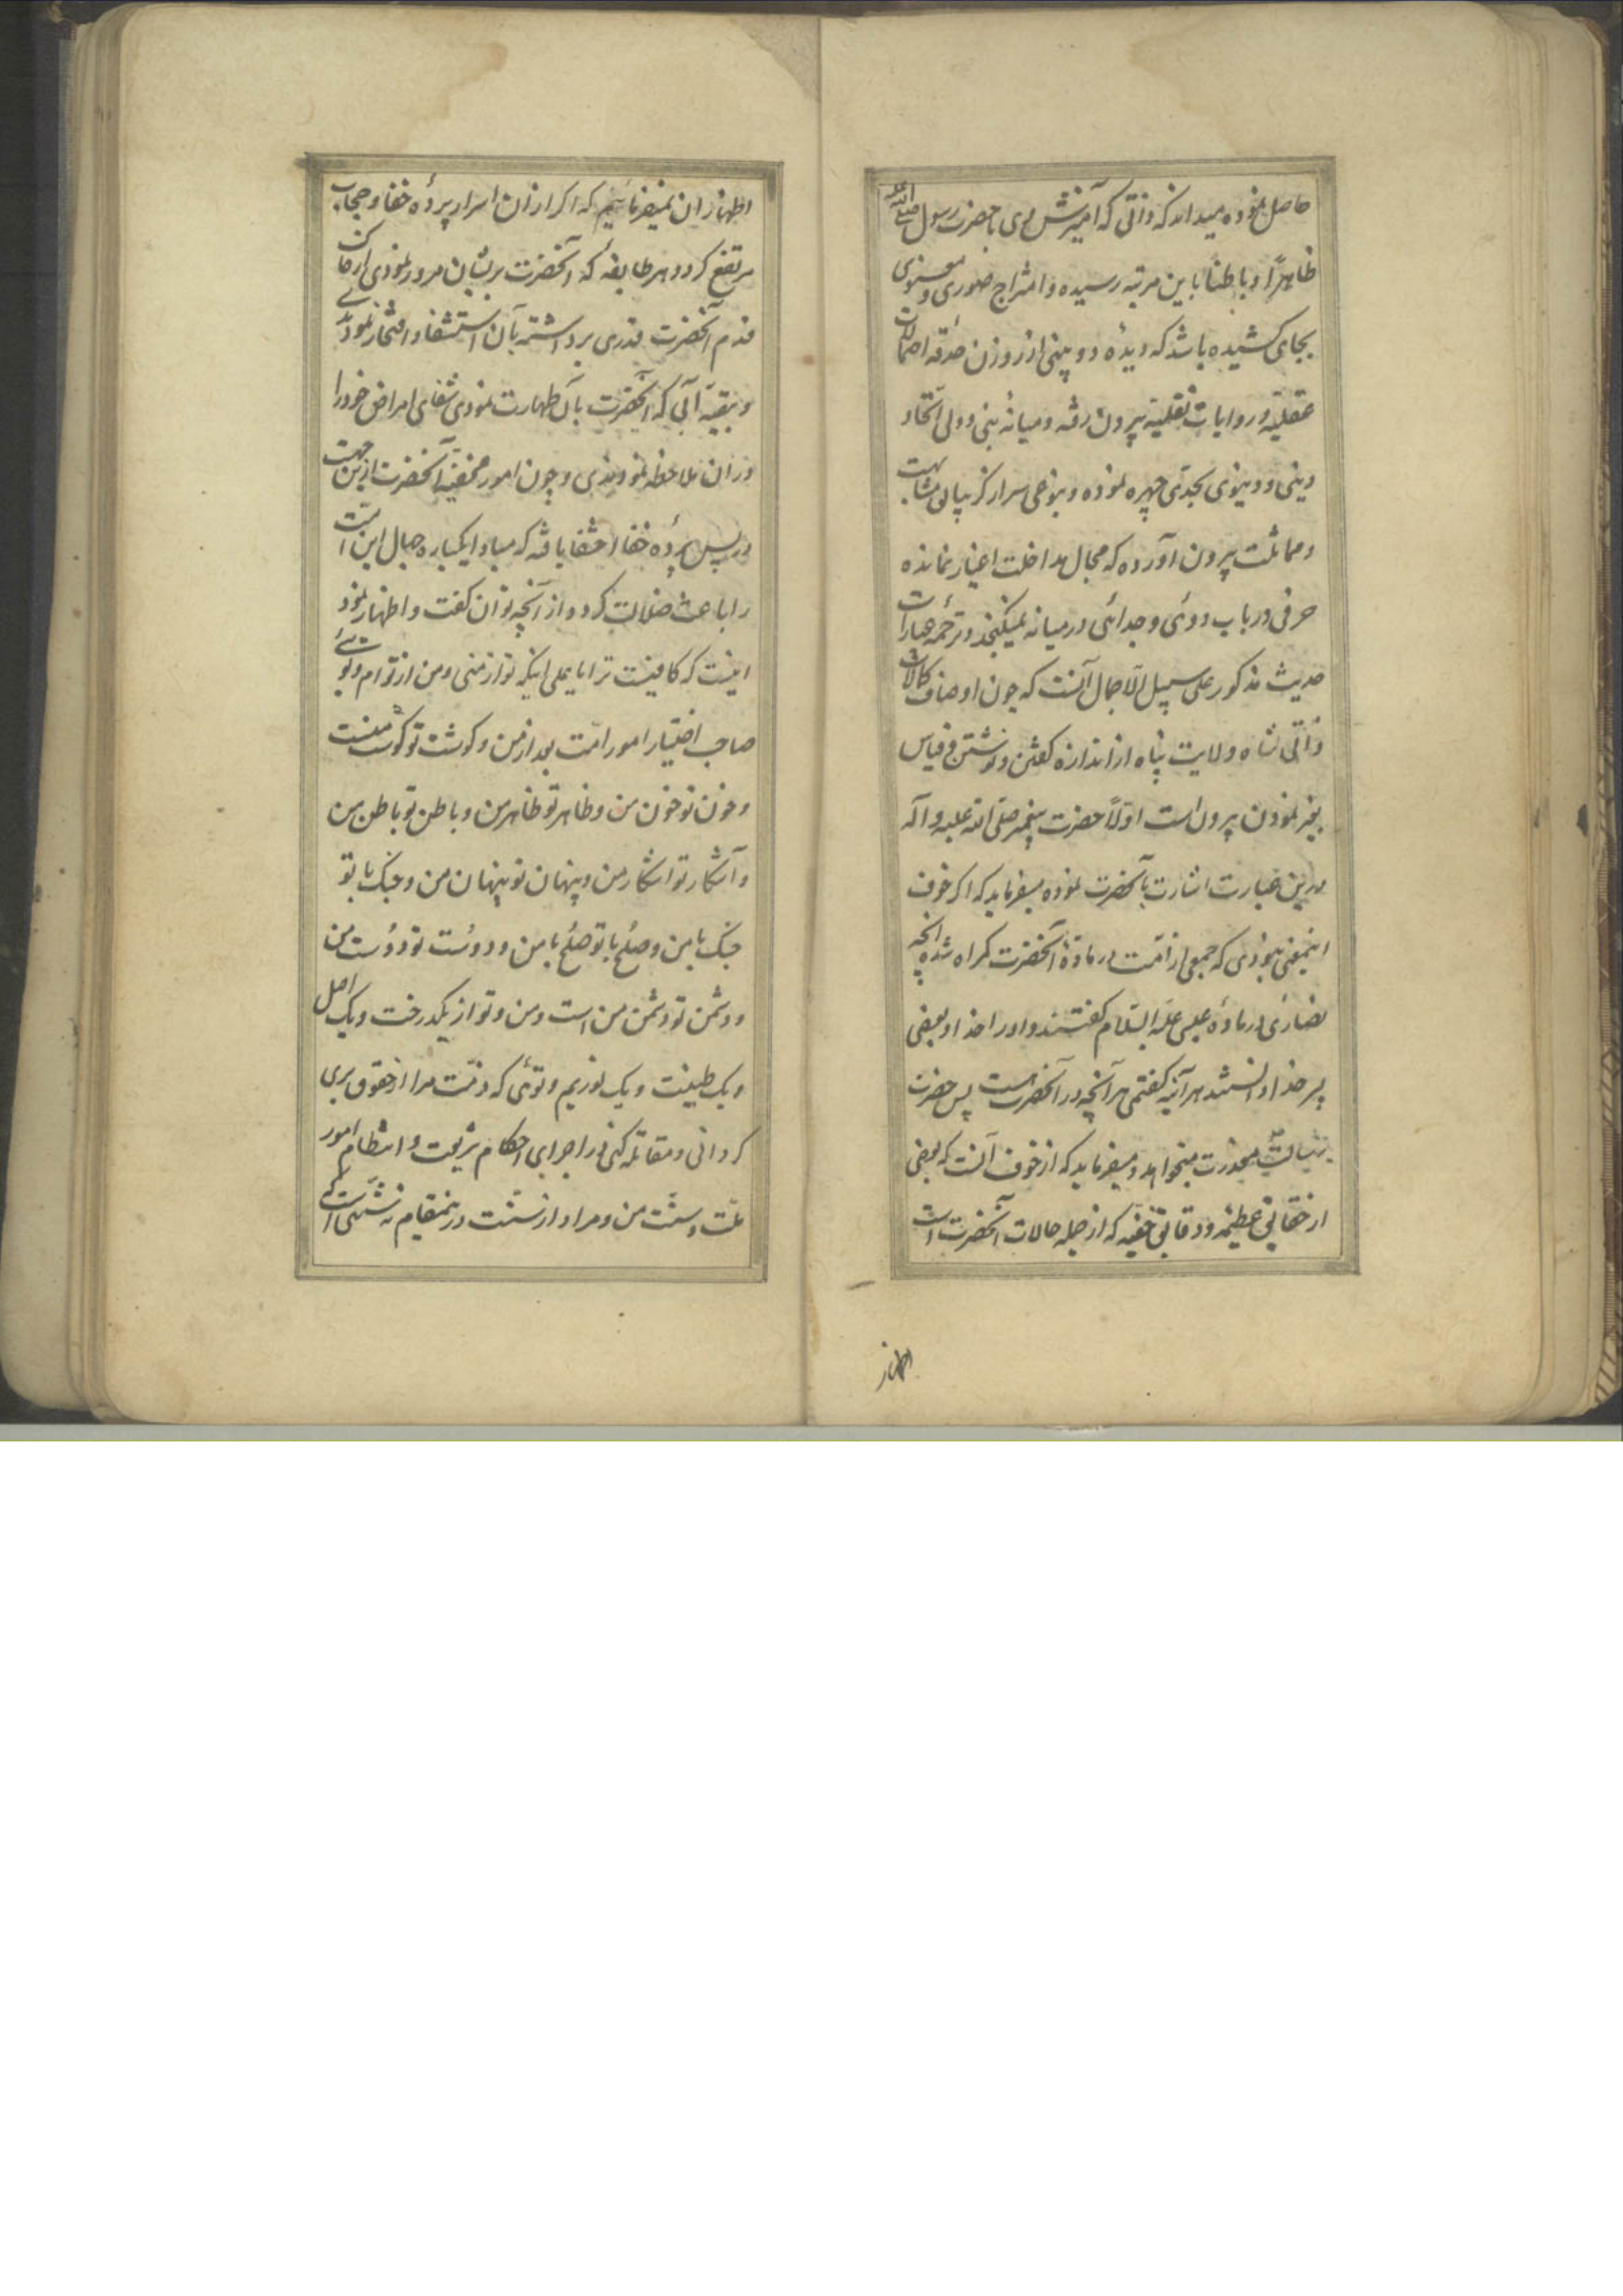 حاصل نموده میداند که ذاتی که آمیزش وی با حضرت رسول صلی الله
ظاهراً و باطناً باین مرتبه رسیده و امتزاج صوری و معنوی
بجای کشیده باشد که دیدهٔ دو بینی از روزن حدقه احتمالات
عقلیّه و روایات نقلیّه بیرون رفته و میانهٔ نبی و ولی اتّحاد
دینی و دنیوی بحدّی چهره نموده و بنوعی سر از کریبان مشابهت
و مماثلت بیرون آورده که مجال مداخلت اغیار نمانده
حرفی در باب دوئی و جدائی در میانه نمیکنجد و ترجمه عبارات
حدیث مذکور علی سبیل الاجمال آنست که چون اوصاف کمالات
ذاتی شاه ولایت پناه از اندازه کفتن و نوشتن و قیاس
بغیر نمودن بیرون است اوّلاً حضرت پیغمبر صلّی الله علیه و آله
بدین عبارت اشارت بآنحضرت نموده میفرماید که اکر خوف
اینمعنی نبودی که جمعی از امّت در مادّهٔ آنحضرت کمراه شده آنچه
نصاری در مادّه عیسی علیه السّلام کفتند و او را خدا و بعضی
پسر خدا دانستند هر آینه کفتمی هر آنچه در آنحضرت است پس حضرت
رسالت معذرت میخواهد و میفرماید که از خوف آنست که بعضی
از حقایق عظیمه و دقایق خفیّه که از جمله حالات آنحضرت است
اظهار
اظهار آن نمیفرمائیم که اکر از آن اسرار پردهٔ خفا و حجاب
مرتفع کردد هر طایفه که آنحضرت بر ایشان مرور نمودی از خاک
قدم آنحضرت قدری برداشته بآن استشفا و افتخار نمودندی
و بقیّه آبی که آنحضرت بآن طهارت نمودی شفای امراض خود را
در آن ملاحظه نمودندی و چون امور مخفیّه آنحضرت ازین جهت
در پس پردهٔ خفا اختفا یافته که مبادا یکباره جهال این امّت
را باعث ضلالت کردد و از آنچه توان کفت و اظهار نمود
اینست که کافیست ترا یا علی اینکه تو از منی و من از تو ام و توئی
صاحب اختیار امور امّت بعد از من و کوشت تو کوشت منست
و خون تو خون من و ظاهر تو ظاهر من و باطن تو باطن من
و آشکار تو اشکار من و پنهان تو پنهان من و جنک با تو
جنک با من و صلح با تو صلح با من و دوست تو دوست من
و دشمن تو دشمن من است و من و تو از یکدرخت و یک اصل
و یک طینت و یک نوریم و توئی که ذمّت مرا از حقوق بری
کردانی و مقاتله کنی در اجرای احکام شریعت و انتظام امور
ملّت و سنّت من و مراد از سنّت در ینمقام نه سنّتی است که